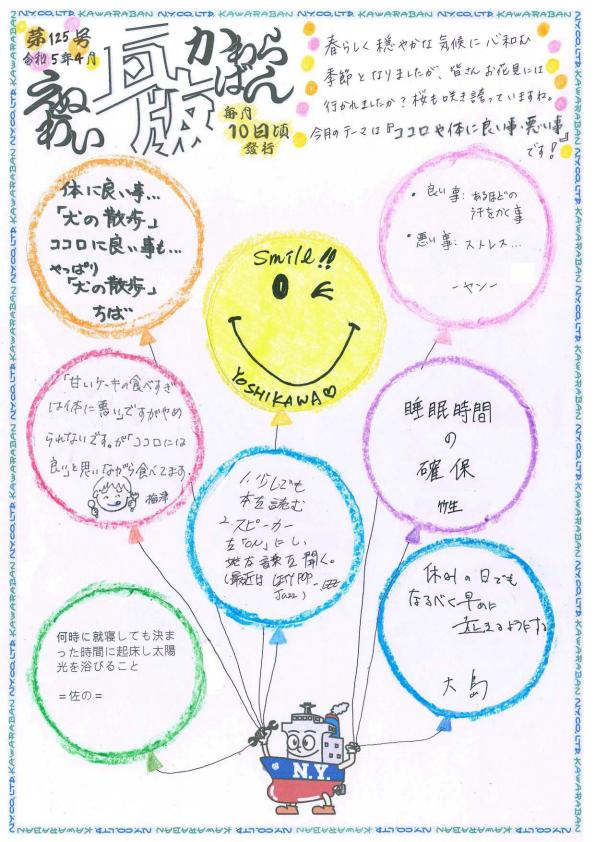 第125号
令和5年4月
えぬわい
瓦版
かわらばん
毎月
10日頃
発行
春らしく穏やかな気候に心和む
季節となりましたが、皆さんお花見には
行かれましたか？桜も咲き誇っていますね。
今月のテーマは『ココロや体に良い事・悪い事』
です！
体に良い事…
「犬の散歩」
ココロに良い事も…
やっぱり
「犬の散歩」
ちば
Smile!!
YOSHIKAWA♡
・良い事：あるほどの
汗をかく事
・悪い事：ストレス…
－ヤン－
「甘いケーキの食べすぎ
は体に悪い」ですがやめ
られないです。が「ココロには
良い」と思いながら食べてます。
梅津
1.少しでも
本を読む
2.スピーカー
を「ON」にし
好きな音を聞く。
(最近は POP
Jazz)
睡眠時間
の
確保
竹生
何時に就寝しても決ま
った時間に起床し太陽
光を浴びること
＝佐の＝
休みの日でも
なるべく早めに
起きるようにする
大島
N.Y.
N.Y.CO.,LTD. KAWARABAN